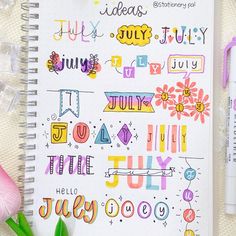 ideas
@stationery.pal
JULY JULY JULY
July JULY JULY
J JULY JULY
JULY JULY
JUNE JULY
HELLO
July July July